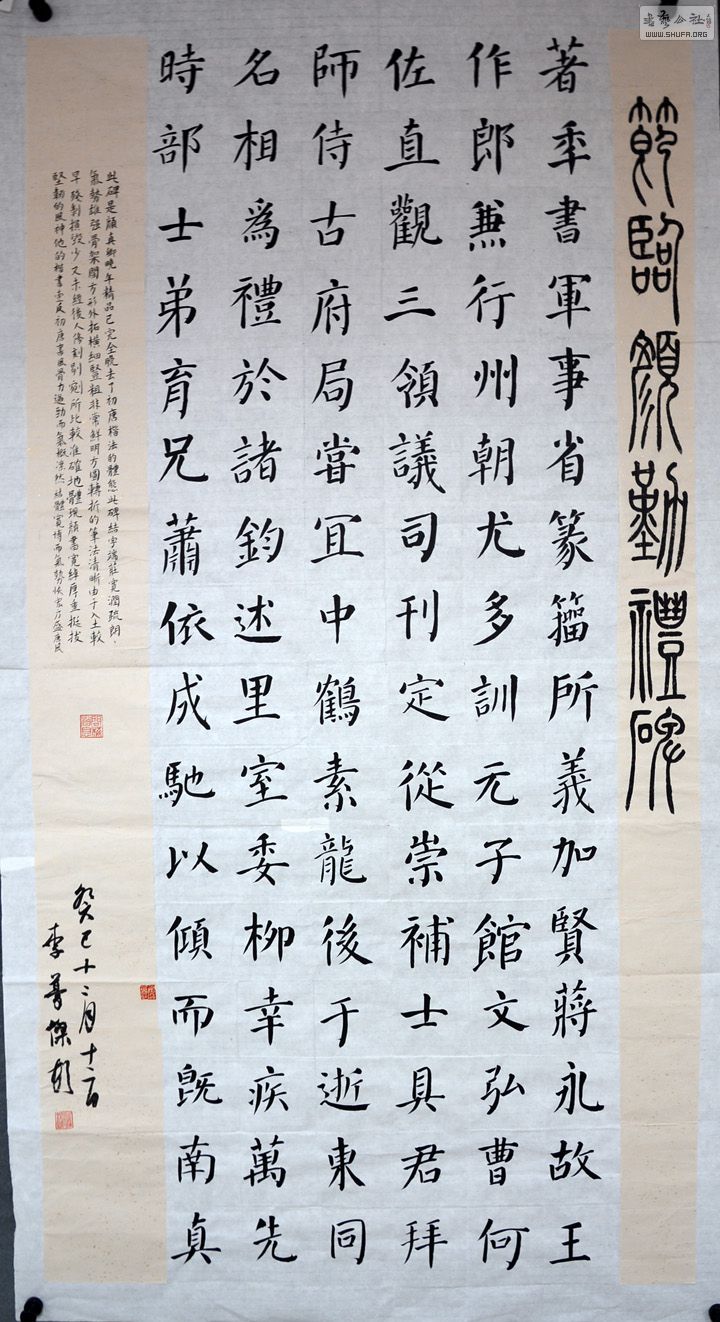 書藝公社
WWW.SHUFA.ORG
節臨顏勤禮碑
著秊書軍事省篆籀所義加賢蔣永故王
作郎兼行州朝尤多訓元子館文弘曹何
佐直觀三領議司刊定從崇補士具君拜
師侍古府局嘗冝中鶴素龍後于逝東同
名相為禮於諸鈞述里室委柳幸疾萬先
時部士弟育兄蕭依成馳以傾而既南真
此碑是顏真卿晚年精品已完全脫去了初唐楷法的體態此碑結字端莊寬潤疏朗、
氣勢雄強骨架開方形外拓橫細豎粗非常鮮明方圓轉折的筆法清晰由于入土較
早殘剝損毀少又未經後人修刻剔剜所比較准確地體現顏書寬綽厚重挺拔
堅韌的風神他的楷書反初唐書風骨力遒勁而氣概凜然結體寬博而氣勢恢宏
癸巳十二月十二日
李善傑